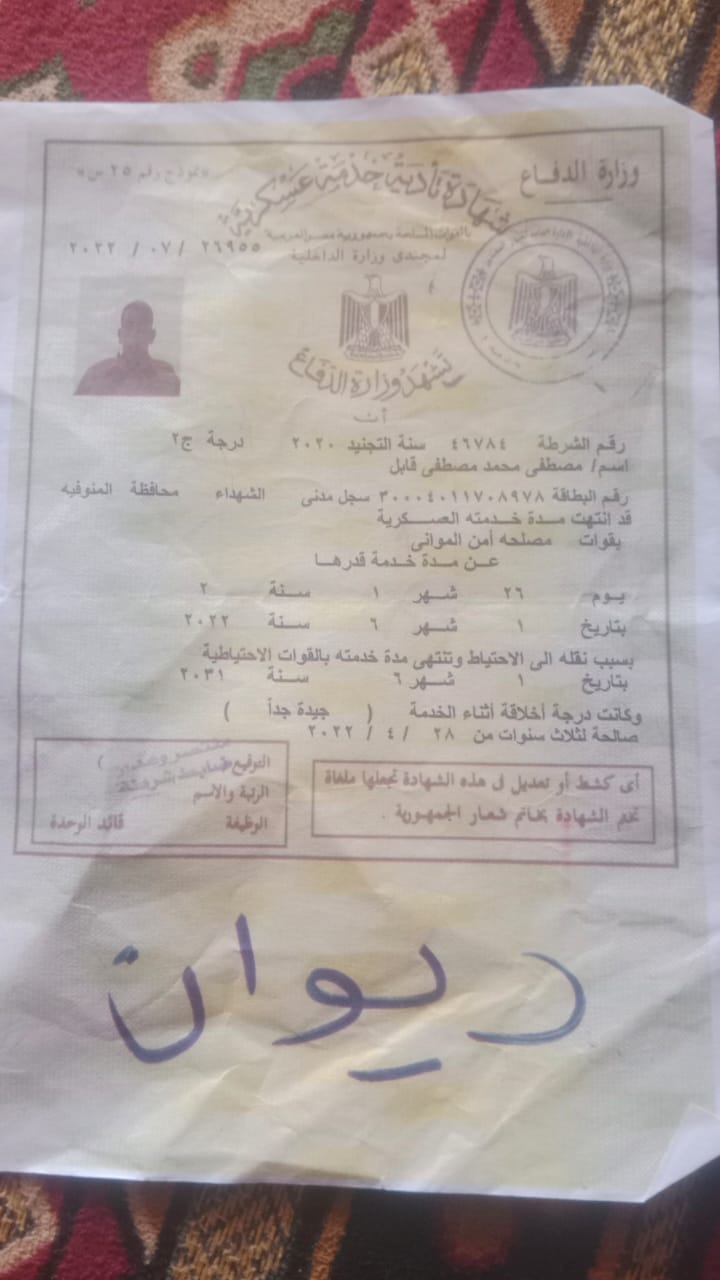 وزارة الدفاع
«نموذج رقم ٢٥ س»
شهادة تأدية خدمة عسكرية
بالقوات المسلحة بجمهورية مصر العربية
لمجندى وزارة الداخلية
٢٦٩٥٥ / ٠٧ / ٢٠٢٢
تشهد وزارة الدفاع
أن
رقم الشرطة ٤٦٧٨٤ سنة التجنيد ٢٠٢٠ درجة ج٢
اسم/ مصطفى محمد مصطفى قابل
رقم البطاقة ٣٠٠٠٤٠١١٧٠٨٩٧٨ سجل مدنى الشهداء محافظة المنوفيه
قد انتهت مدة خدمته العسكرية
بقوات مصلحه أمن الموانى
عن مدة خدمة قدرها
يوم ٢٦ شهر ١ سنة ٢
بتاريخ ١ شهر ٦ سنة ٢٠٢٢
بسبب نقله الى الاحتياط وتنتهى مدة خدمته بالقوات الاحتياطية
بتاريخ ١ شهر ٦ سنة ٢٠٣١
وكانت درجة أخلاقة أثناء الخدمة ( جيدة جداً )
صالحة لثلاث سنوات من ٢٨ / ٤ / ٢٠٢٢
أى كشط أو تعديل فى هذه الشهادة تجعلها ملغاة
تختم الشهادة بخاتم شعار الجمهورية .
التوقيع
الرتبة والاسم
الوظيفة قائد الوحدة
ديوان